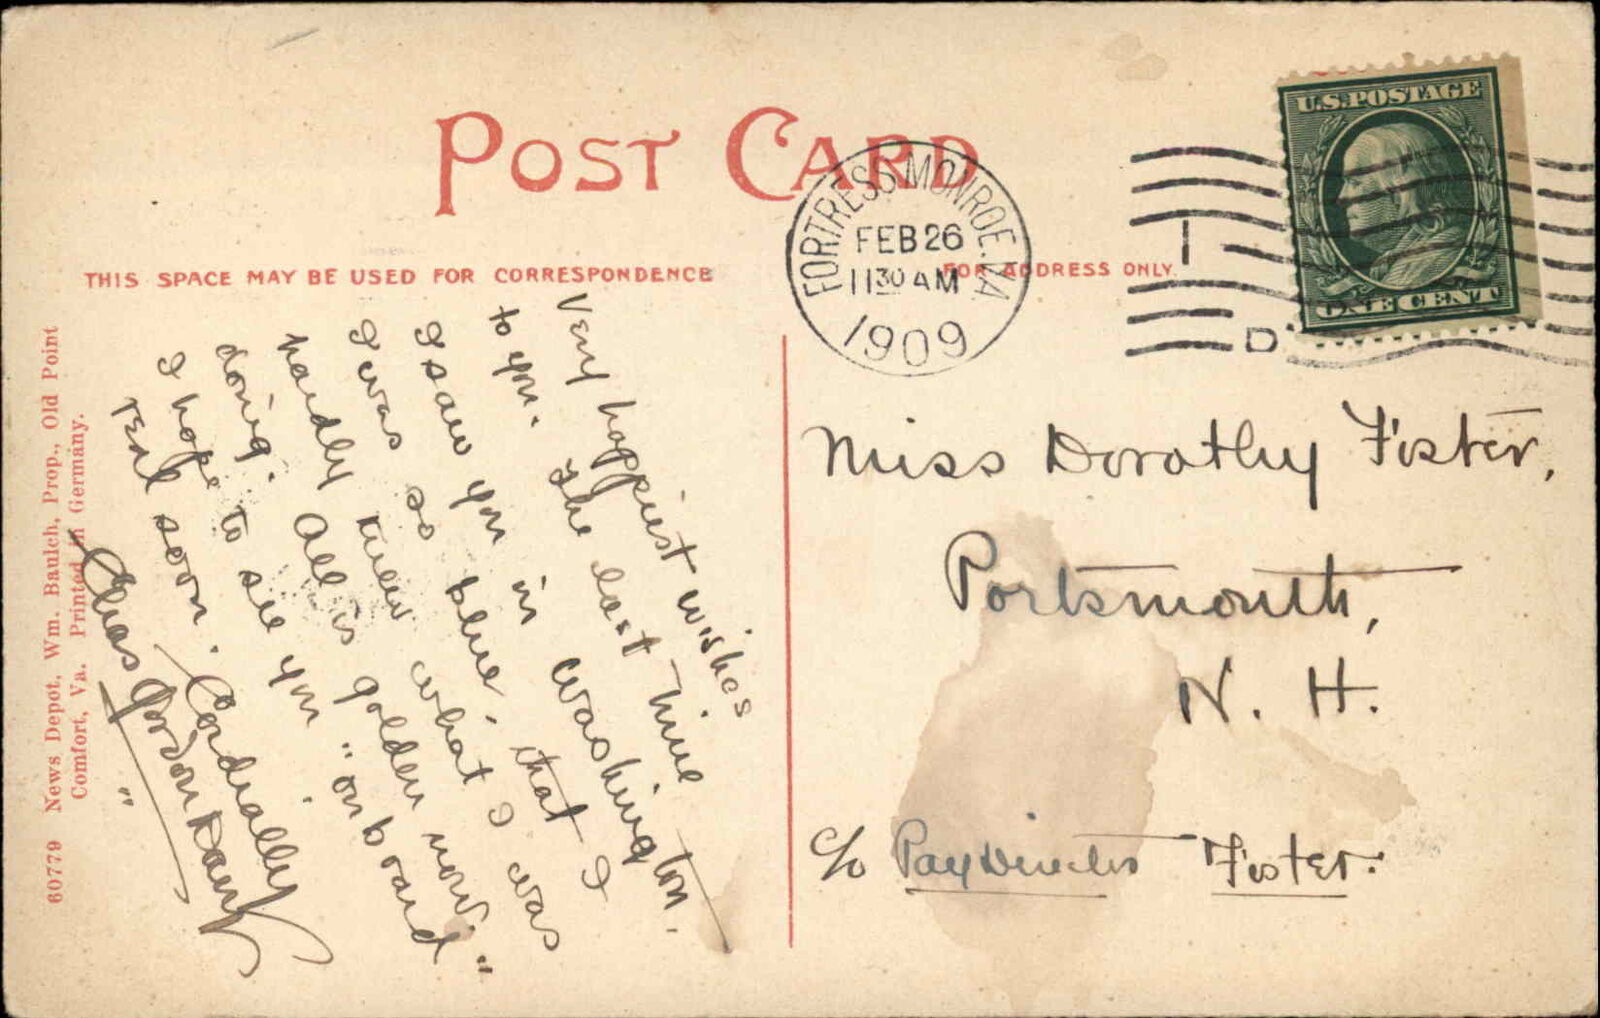 POST CARD
THIS SPACE MAY BE USED FOR CORRESPONDENCE
FOR ADDRESS ONLY.
FORTRESS MONROE. VA
FEB 26
11 30 AM
1909
I
D
U.S. POSTAGE
ONE CENT
Very happiest wishes
to you. The last time
I saw you in Washington.
I was so blue, that I
hardly knew what I was
doing. All is golden now.
I hope to see you "on board"
real soon. Cordially
Chas Gordon
Miss Dorothy Foster,
Portsmouth,
N. H.
c/o Pay Foster.
60779 News Depot, Wm. Baulch, Prop., Old Point
Comfort, Va. Printed in Germany.